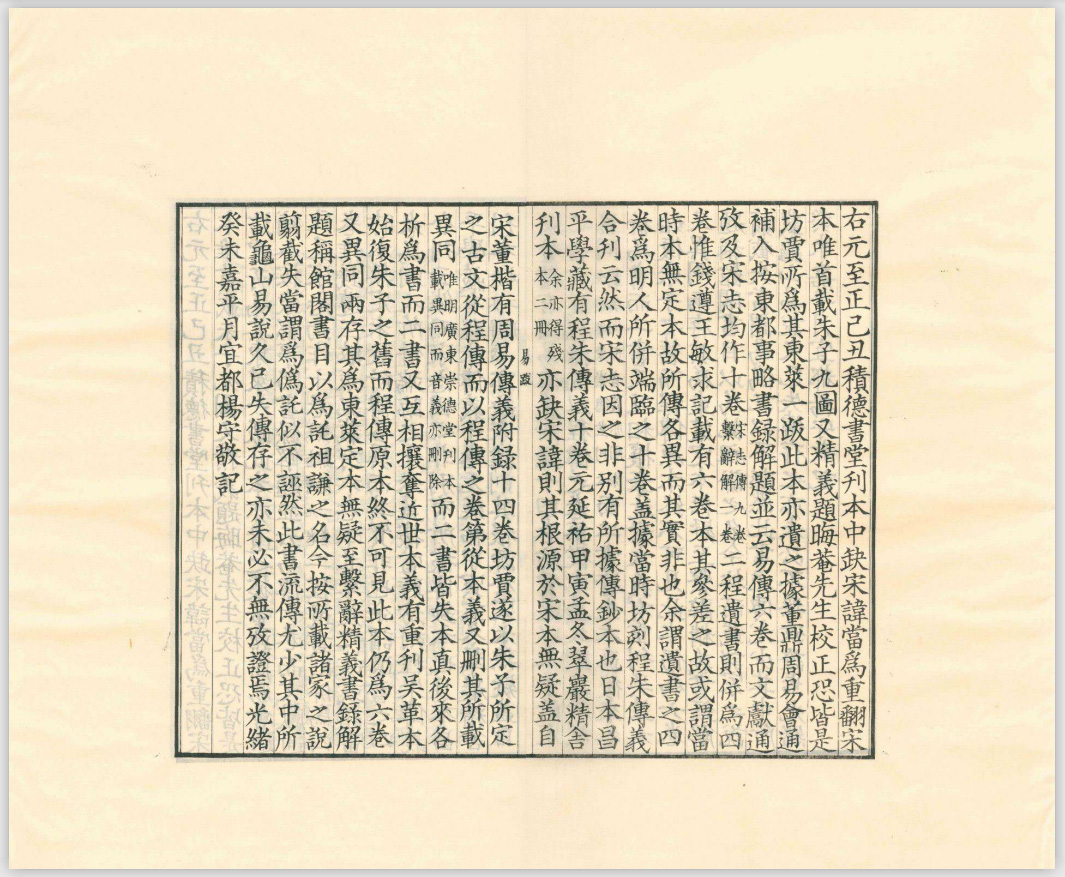 右元至正己丑積德書堂刊本中缺宋諱當爲重翻宋
本唯首載朱子九圖又精義題晦菴先生校正恐皆是
坊賈所爲其東萊一䟦此本亦遺之據董鼎周易會通
補入按東都事略書録解題並云易傳六卷而文獻通
攷及宋志均作十卷宋志傳九卷繫辭解一卷二程遺書則併爲四
卷惟錢遵王敏求記載有六卷本其參差之故或謂當
時本無定本故所傳各異而其實非也余謂遺書之四
卷爲明人所併端臨之十卷盖據當時坊刻程朱傳義
合刊云然而宋志因之非別有所據傳鈔本也日本昌
平學藏有程朱傳義十卷元延祐甲寅孟冬翠巖精舍
刊本余亦得殘本二冊亦缺宋諱則其根源於宋本無疑盖自
易䟦
宋董楷有周易傳義附録十四卷坊賈遂以朱子所定
之古文從程傳而以程傳之卷第從本義又刪其所載
異同唯明廣東崇德堂刊本載異同而音義亦刪除而二書皆失本真後來各
析爲書而二書又互相攘奪近世本義有重刊吴革本
始復朱子之舊而程傳原本終不可見此本仍爲六卷
又異同兩存其爲東萊定本無疑至繫辭精義書錄解
題稱館閣書目以爲託祖謙之名今按所載諸家之說
翦截失當謂爲僞託似不誣然此書流傳尤少其中所
載龜山易說久已失傳存之亦未必不無攷證焉光緒
癸未嘉平月宜都楊守敬記